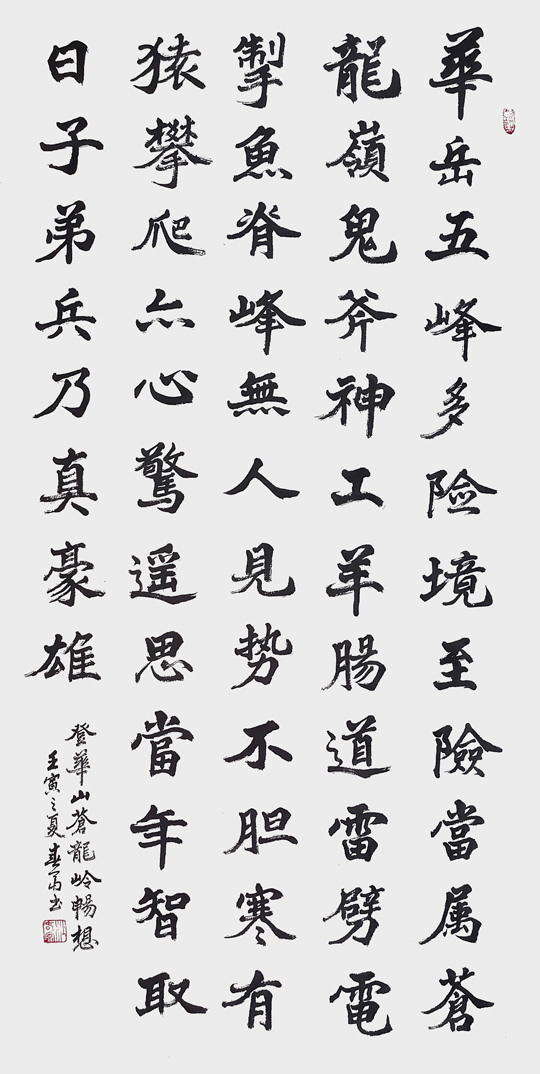 華岳五峰多險境至險當属蒼
龍嶺鬼斧神工羊腸道雷劈電
掣魚脊峰無人見势不胆寒有
猿攀爬亦心驚遥思當年智取
日子弟兵乃真豪雄
登華山蒼龍岭暢想
壬寅之夏春书